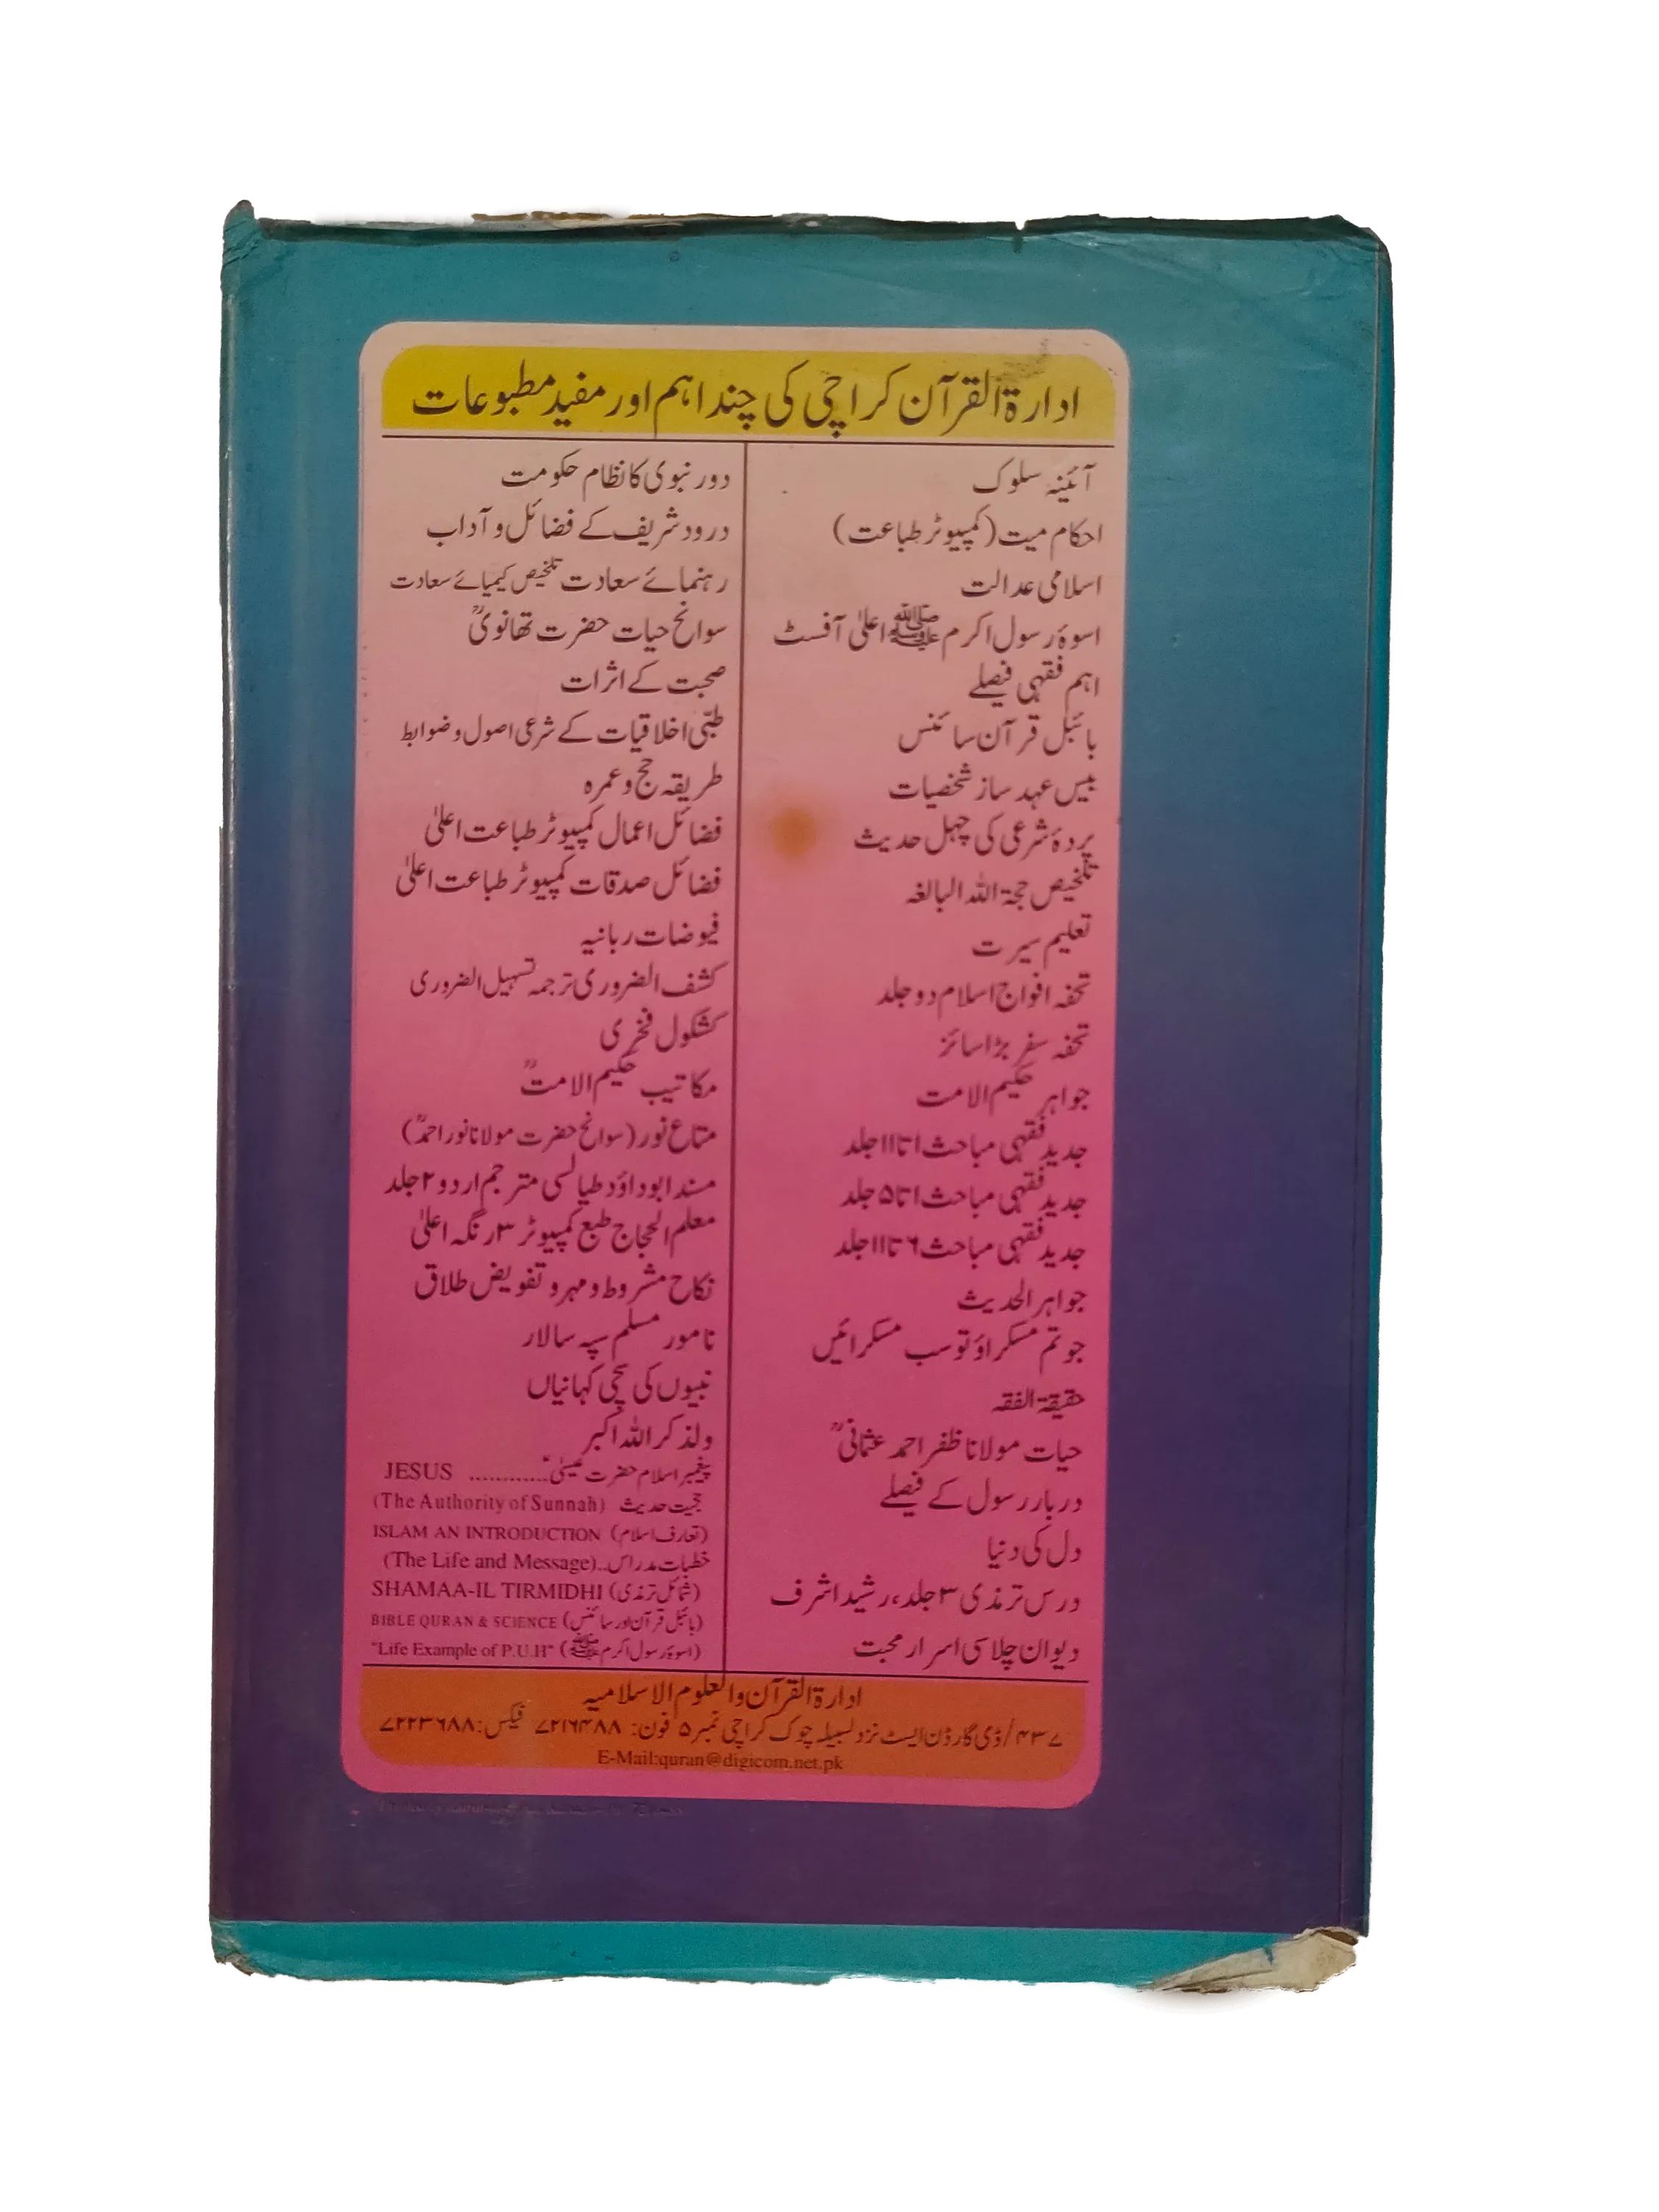 ادارۃ القرآن کراچی کی چند اہم اور مفید مطبوعات
آئینہ سلوک
احکام میت (کمپیوٹر طباعت)
اسلامی عدالت
اسوۂ رسول اکرم ﷺ اعلیٰ آفسٹ
اہم فقہی فیصلے
بائبل قرآن سائنس
بیس عہد ساز شخصیات
پردۂ شرعی کی چہل حدیث
تلخیص حجۃ اللہ البالغہ
تعلیم سیرت
تحفہ افواج اسلام دو جلد
تحفہ سفر بڑا سائز
جواہر حکیم الامت
جدید فقہی مباحث ۱ تا ۱۱ جلد
جدید فقہی مباحث ۱ تا ۵ جلد
جدید فقہی مباحث ۶ تا ۱۱ جلد
جواہر الحدیث
جو تم مسکراؤ تو سب مسکرائیں
حقیقۃ الفقہ
حیات مولانا ظفر احمد عثمانیؒ
دربار رسول کے فیصلے
دل کی دنیا
درس ترمذی ۳ جلد، رشید اشرف
دیوان چلاسی اسرار محبت
دور نبوی کا نظام حکومت
درود شریف کے فضائل و آداب
رہنمائے سعادت تلخیص کیمیائے سعادت
سوانح حیات حضرت تھانویؒ
صحبت کے اثرات
طبّی اخلاقیات کے شرعی اصول و ضوابط
طریقہ حج و عمرہ
فضائل اعمال کمپیوٹر طباعت اعلیٰ
فضائل صدقات کمپیوٹر طباعت اعلیٰ
فیوضات ربانیہ
کشف الضروری ترجمہ تسہیل الضروری
کشکول فخری
مکاتیب حکیم الامتؒ
متاع نور (سوانح حضرت مولانا نور احمدؒ)
مسند ابوداؤد طیالسی مترجم اردو ۲ جلد
معلم الحجاج طبع کمپیوٹر ۳ رنگہ اعلیٰ
نکاح مشروط و مہر و تفویض طلاق
نامور مسلم سپہ سالار
نبیوں کی سچی کہانیاں
ولذکر اللہ اکبر
پیغمبر اسلام حضرت عیسیٰؑ ............ JESUS
حجیت حدیث (The Authority of Sunnah)
(تعارف اسلام) ISLAM AN INTRODUCTION
خطبات مدراس..(The Life and Message)
(شمائل ترمذی) SHAMAA-IL TIRMIDHI
(بائبل قرآن اور سائنس) BIBLE QURAN & SCIENCE
(اسوۂ رسول اکرم ﷺ) "Life Example of P.U.H"
ادارۃ القرآن والعلوم الاسلامیہ
۴۳۷/ڈی گارڈن ایسٹ نزد لسبیلہ چوک کراچی نمبر ۵ فون: ۷۲۱۶۴۸۸ فیکس: ۷۲۲۳۶۸۸
E-Mail:quran@digicom.net.pk